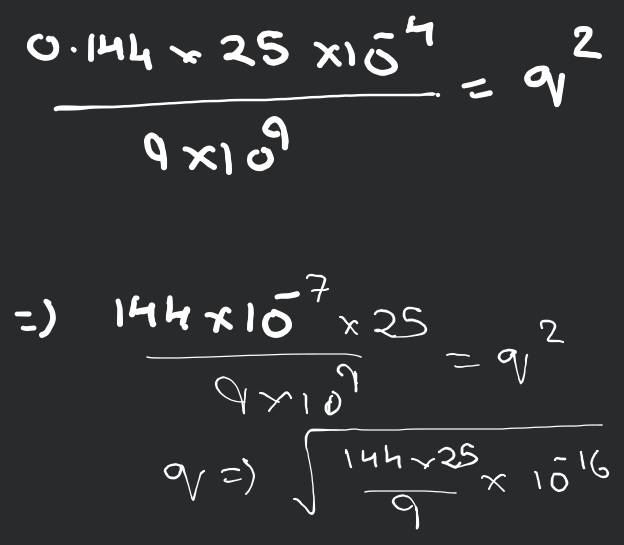 0.144 × 25 × 10⁻⁴ / 9 × 10⁹ = q²
=) 144 × 10⁻⁷ × 25 / 9 × 10⁹ = q²
q =) √(144 × 25 / 9 × 10⁻¹⁶)